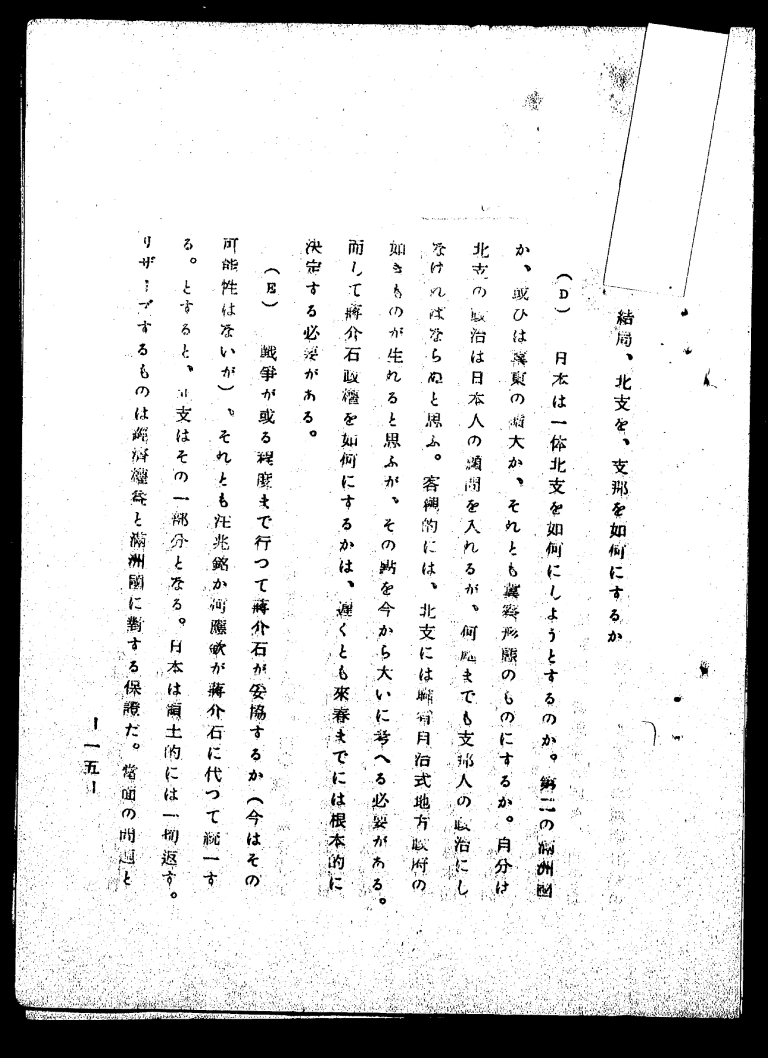 結局、北支を、支那を如何にするか
(D) 日本は一体北支を如何にしようとするのか。第二の滿洲國
か、或ひは冀東の擴大か、それとも冀察形態のものにするか。自分は
北支の政治は日本人の顧問を入れるが、何處までも支那人の政治にし
なければならぬと思ふ。客觀的には、北支には聯省自治式地方政府の
如きものが生れると思ふが、その點を今から大いに考へる必要がある。
而して蔣介石政權を如何にするかは、遲くとも來春までには根本的に
決定する必要がある。
(E) 戰爭が或る程度まで行つて蔣介石が妥協するか(今はその
可能性はないが)、それとも汪兆銘か何應欽が蔣介石に代つて統一す
る。とすると、北支はその一部分となる。日本は領土的には一切返す。
リザーブするものは經濟權益と滿洲國に對する保證だ。當面の問題と
ー一五ー